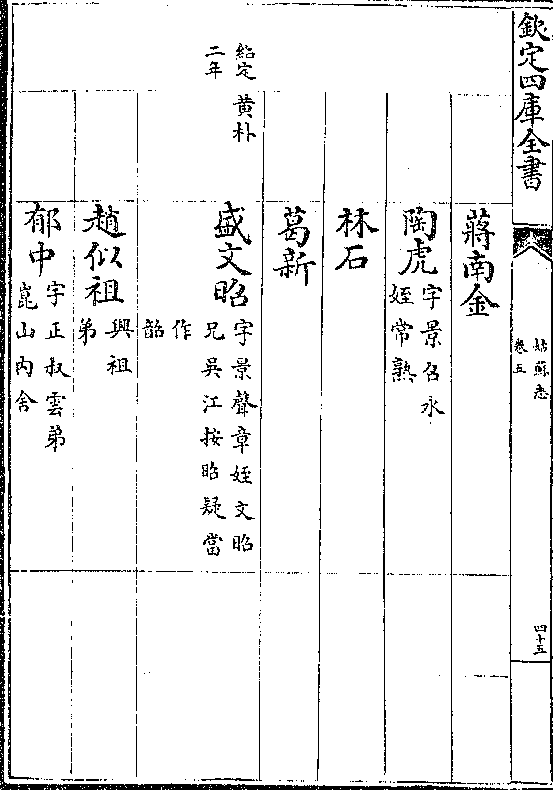 欽定四庫全書
姑蘇志
卷五
四十五
蔣南金
陶虎
字景召永
姪常熟
林石
葛新
紹定
二年
黄朴
盛文昭
字景聲章姪文昭
兄吳江按昭疑當
作
韶
趙似祖
興祖
弟
郁中
字正叔雲弟
崑山内舍